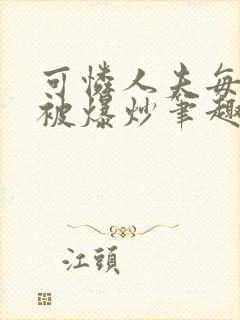 可憐人夫每
被爆炒筆趣
江頭